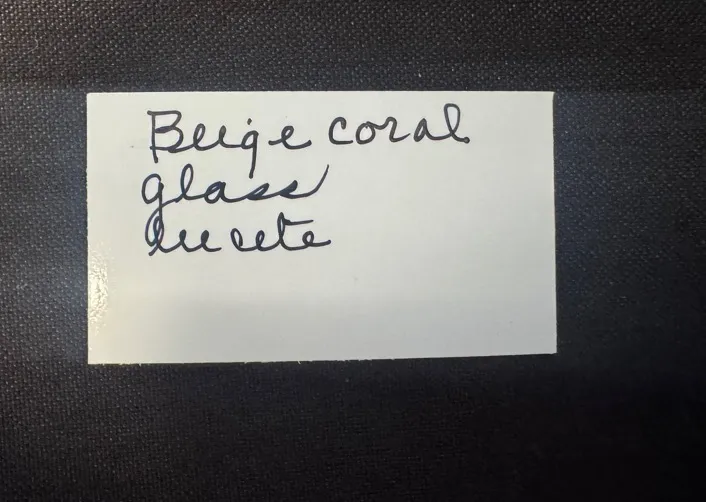 Beige coral
glass
lucite